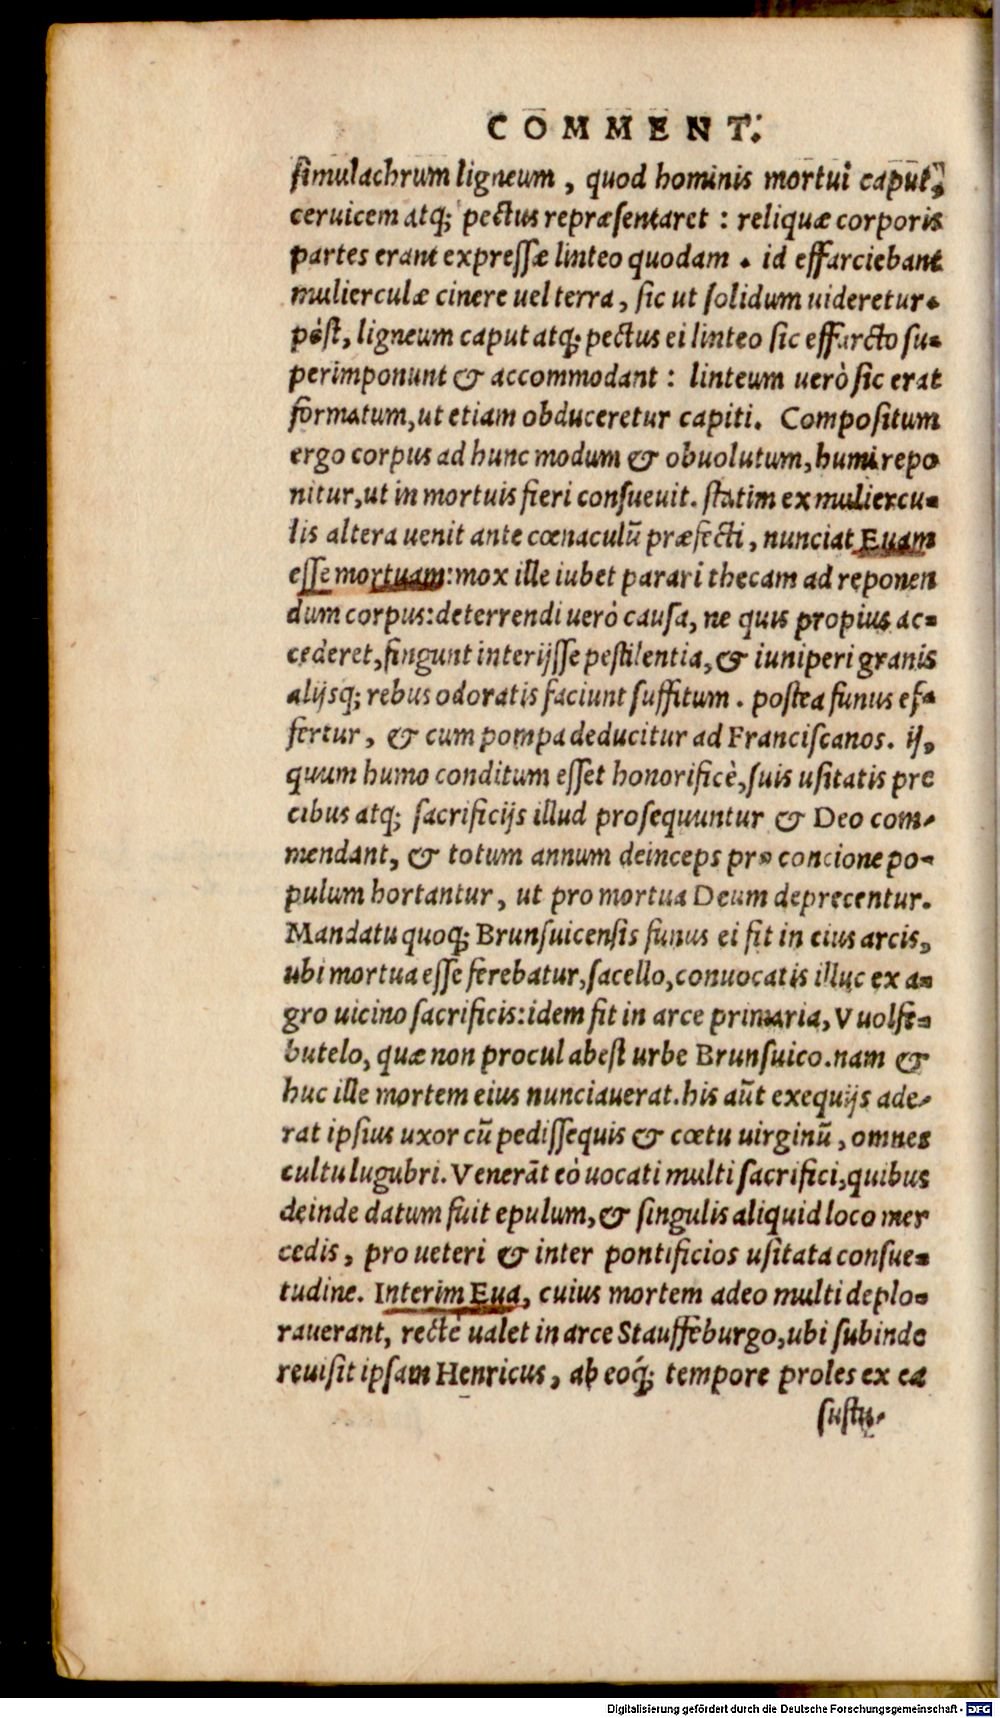 COMMENT.
simulachrum ligneum, quod hominis mortui caput,
ceruicem atq; pectus repræsentaret: reliquæ corporis
partes erant expressæ linteo quodam. id effarciebant
mulierculæ cinere uel terra, sic ut solidum uideretur.
pòst, ligneum caput atq; pectus ei linteo sic effarcto su-
perimponunt & accommodant: linteum uerò sic erat
formatum, ut etiam obduceretur capiti. Compositum
ergo corpus ad hunc modum & obuolutum, humi repo
nitur, ut in mortuis fieri consueuit. statim ex muliercu-
lis altera uenit ante cœnaculū præfecti, nunciat Euam
esse mortuam: mox ille iubet parari thecam ad reponen
dum corpus: deterrendi uerò causa, ne quis propius ac-
cederet, fingunt interijsse pestilentia, & iuniperi granis
alijsq; rebus odoratis faciunt suffitum. postea funus ef-
fertur, & cum pompa deducitur ad Franciscanos. ij,
quum humo conditum esset honorificè, suis usitatis pre
cibus atq; sacrificijs illud prosequuntur & Deo com-
mendant, & totum annum deinceps pro concione po-
pulum hortantur, ut pro mortua Deum deprecentur.
Mandatu quoq; Brunsuicensis funus ei fit in eius arcis,
ubi mortua esse ferebatur, sacello, conuocatis illuc ex a-
gro uicino sacrificis: idem fit in arce primaria, Vuolfe-
butelo, quæ non procul abest urbe Brunsuico. nam &
huc ille mortem eius nunciauerat. his aūt exequijs ade-
rat ipsius uxor cū pedissequis & cœtu uirginū, omnes
cultu lugubri. Venerāt eò uocati multi sacrifici, quibus
deinde datum fuit epulum, & singulis aliquid loco mer
cedis, pro ueteri & inter pontificios usitata consue-
tudine. Interim Eua, cuius mortem adeo multi deplo-
rauerant, rectè ualet in arce Stauffeburgo, ubi subinde
reuisit ipsam Henricus, ab eoq́; tempore proles ex ea
sustu-
Digitalisierung gefördert durch die Deutsche Forschungsgemeinschaft - DFG